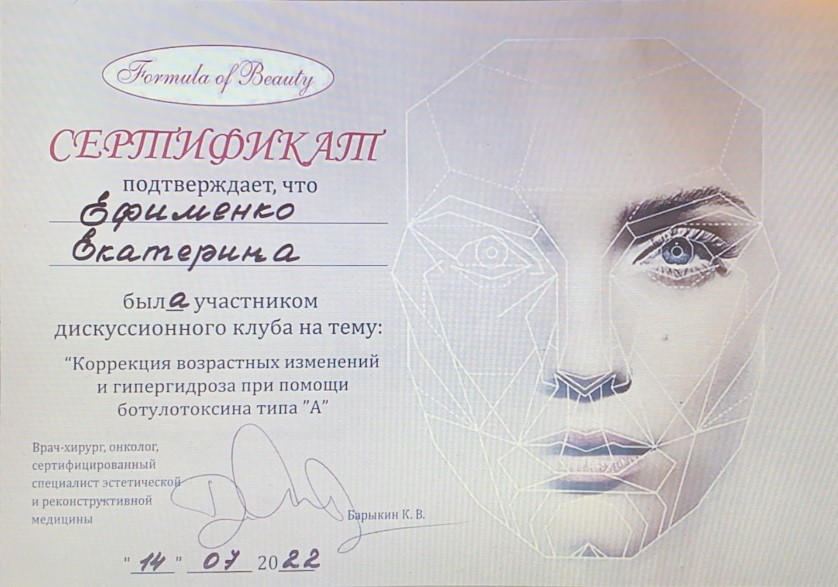 Formula of Beauty
СЕРТИФИКАТ
подтверждает, что
Ефименко
Екатерина
была участником
дискуссионного клуба на тему:
“Коррекция возрастных изменений
и гипергидроза при помощи
ботулотоксина типа ”А”
Врач-хирург, онколог,
сертифицированный
специалист эстетической
и реконструктивной
медицины
Барыкин К. В.
"14" 07 2022